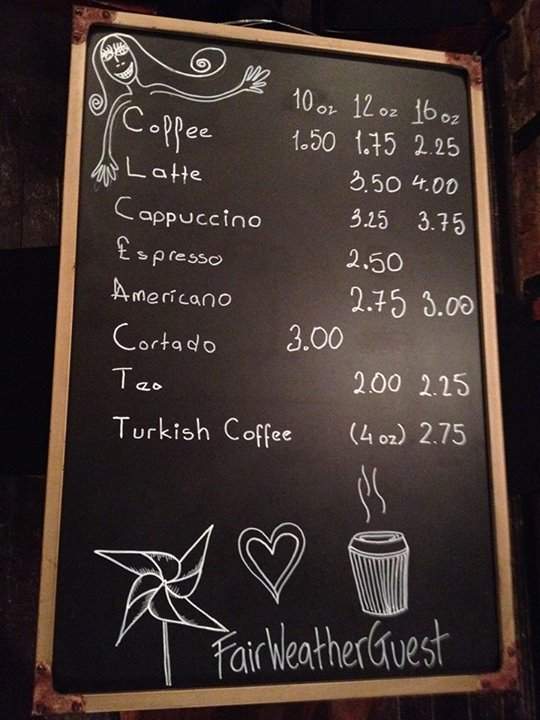 10 oz 12 oz 16 oz
Coffee 1.50 1.75 2.25
Latte 3.50 4.00
Cappuccino 3.25 3.75
Espresso 2.50
Americano 2.75 3.00
Cortado 3.00
Tea 2.00 2.25
Turkish Coffee (4 oz) 2.75
FairWeatherGuest